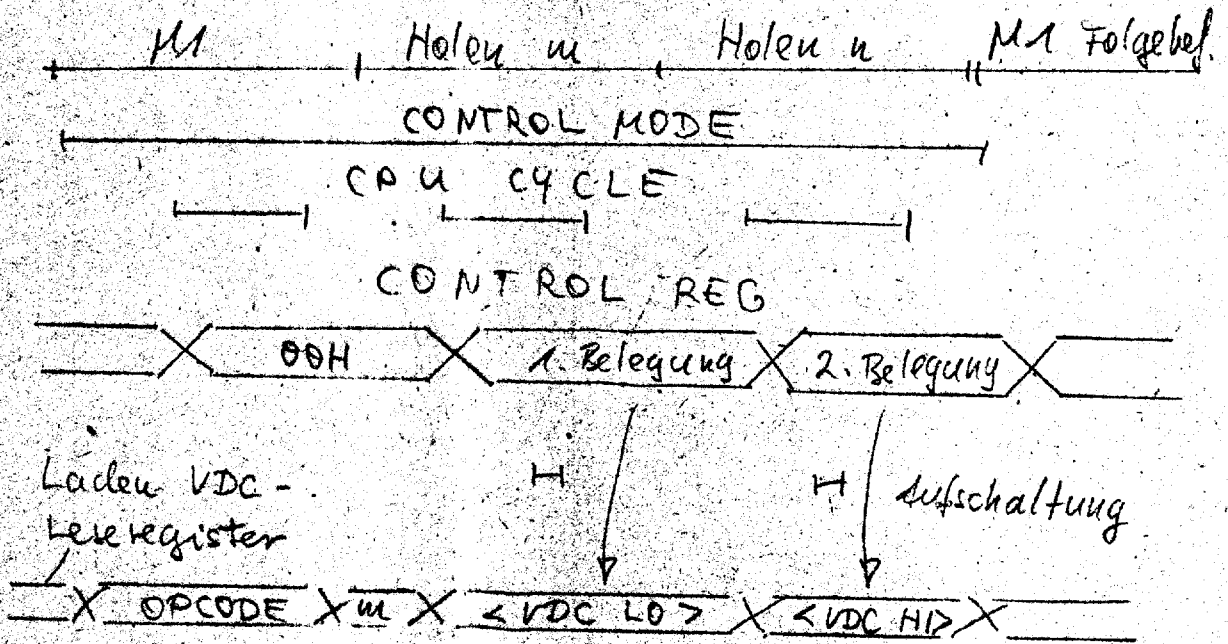 M1 Holen m Holen n M1 Folgebef.
CONTROL MODE
CPU CYCLE
CONTROL REG
00H 1. Belegung 2. Belegung
Laden VDC-
Leseregister
Aufschaltung
OPCODE m <VDC LO> <VDC HI>